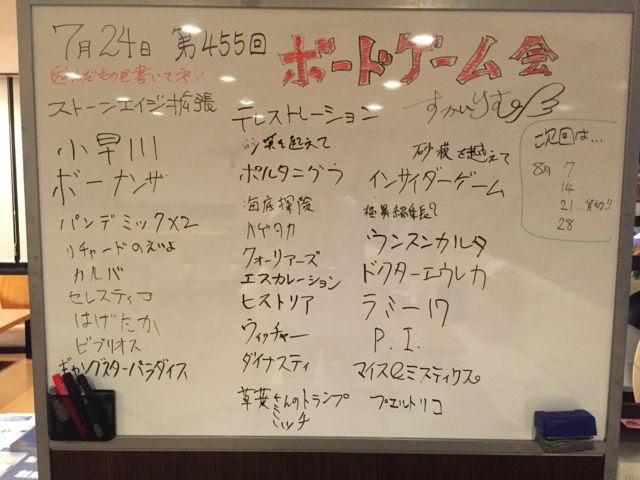 7月24日 第455回 ボードゲーム会
遊んだもの書いてネ!
ストーンエイジ拡張
小早川
ボーナンザ
パンデミック×2
リチャードのえいよ
カルバ
セレスティア
はげたか
ビブリオス
ギャングスターパラダイス
テレストレーション
砂漠を越えて
ポルタニグラ
海底探険
ハゲタカ
クォーリアーズ
エスカレーション
ヒストリア
ウィッチャー
ダイナスティ
草葉さんのトランプ
ミッチ
すかいりむ
砂模を越えて
インサイダーゲーム
ウンスンカルタ
ドクターエウレカ
ラミー17
P.I.
マイス&ミスティクス
プエルトリコ
次回は...
8月 7
14
21...貸切!!
28